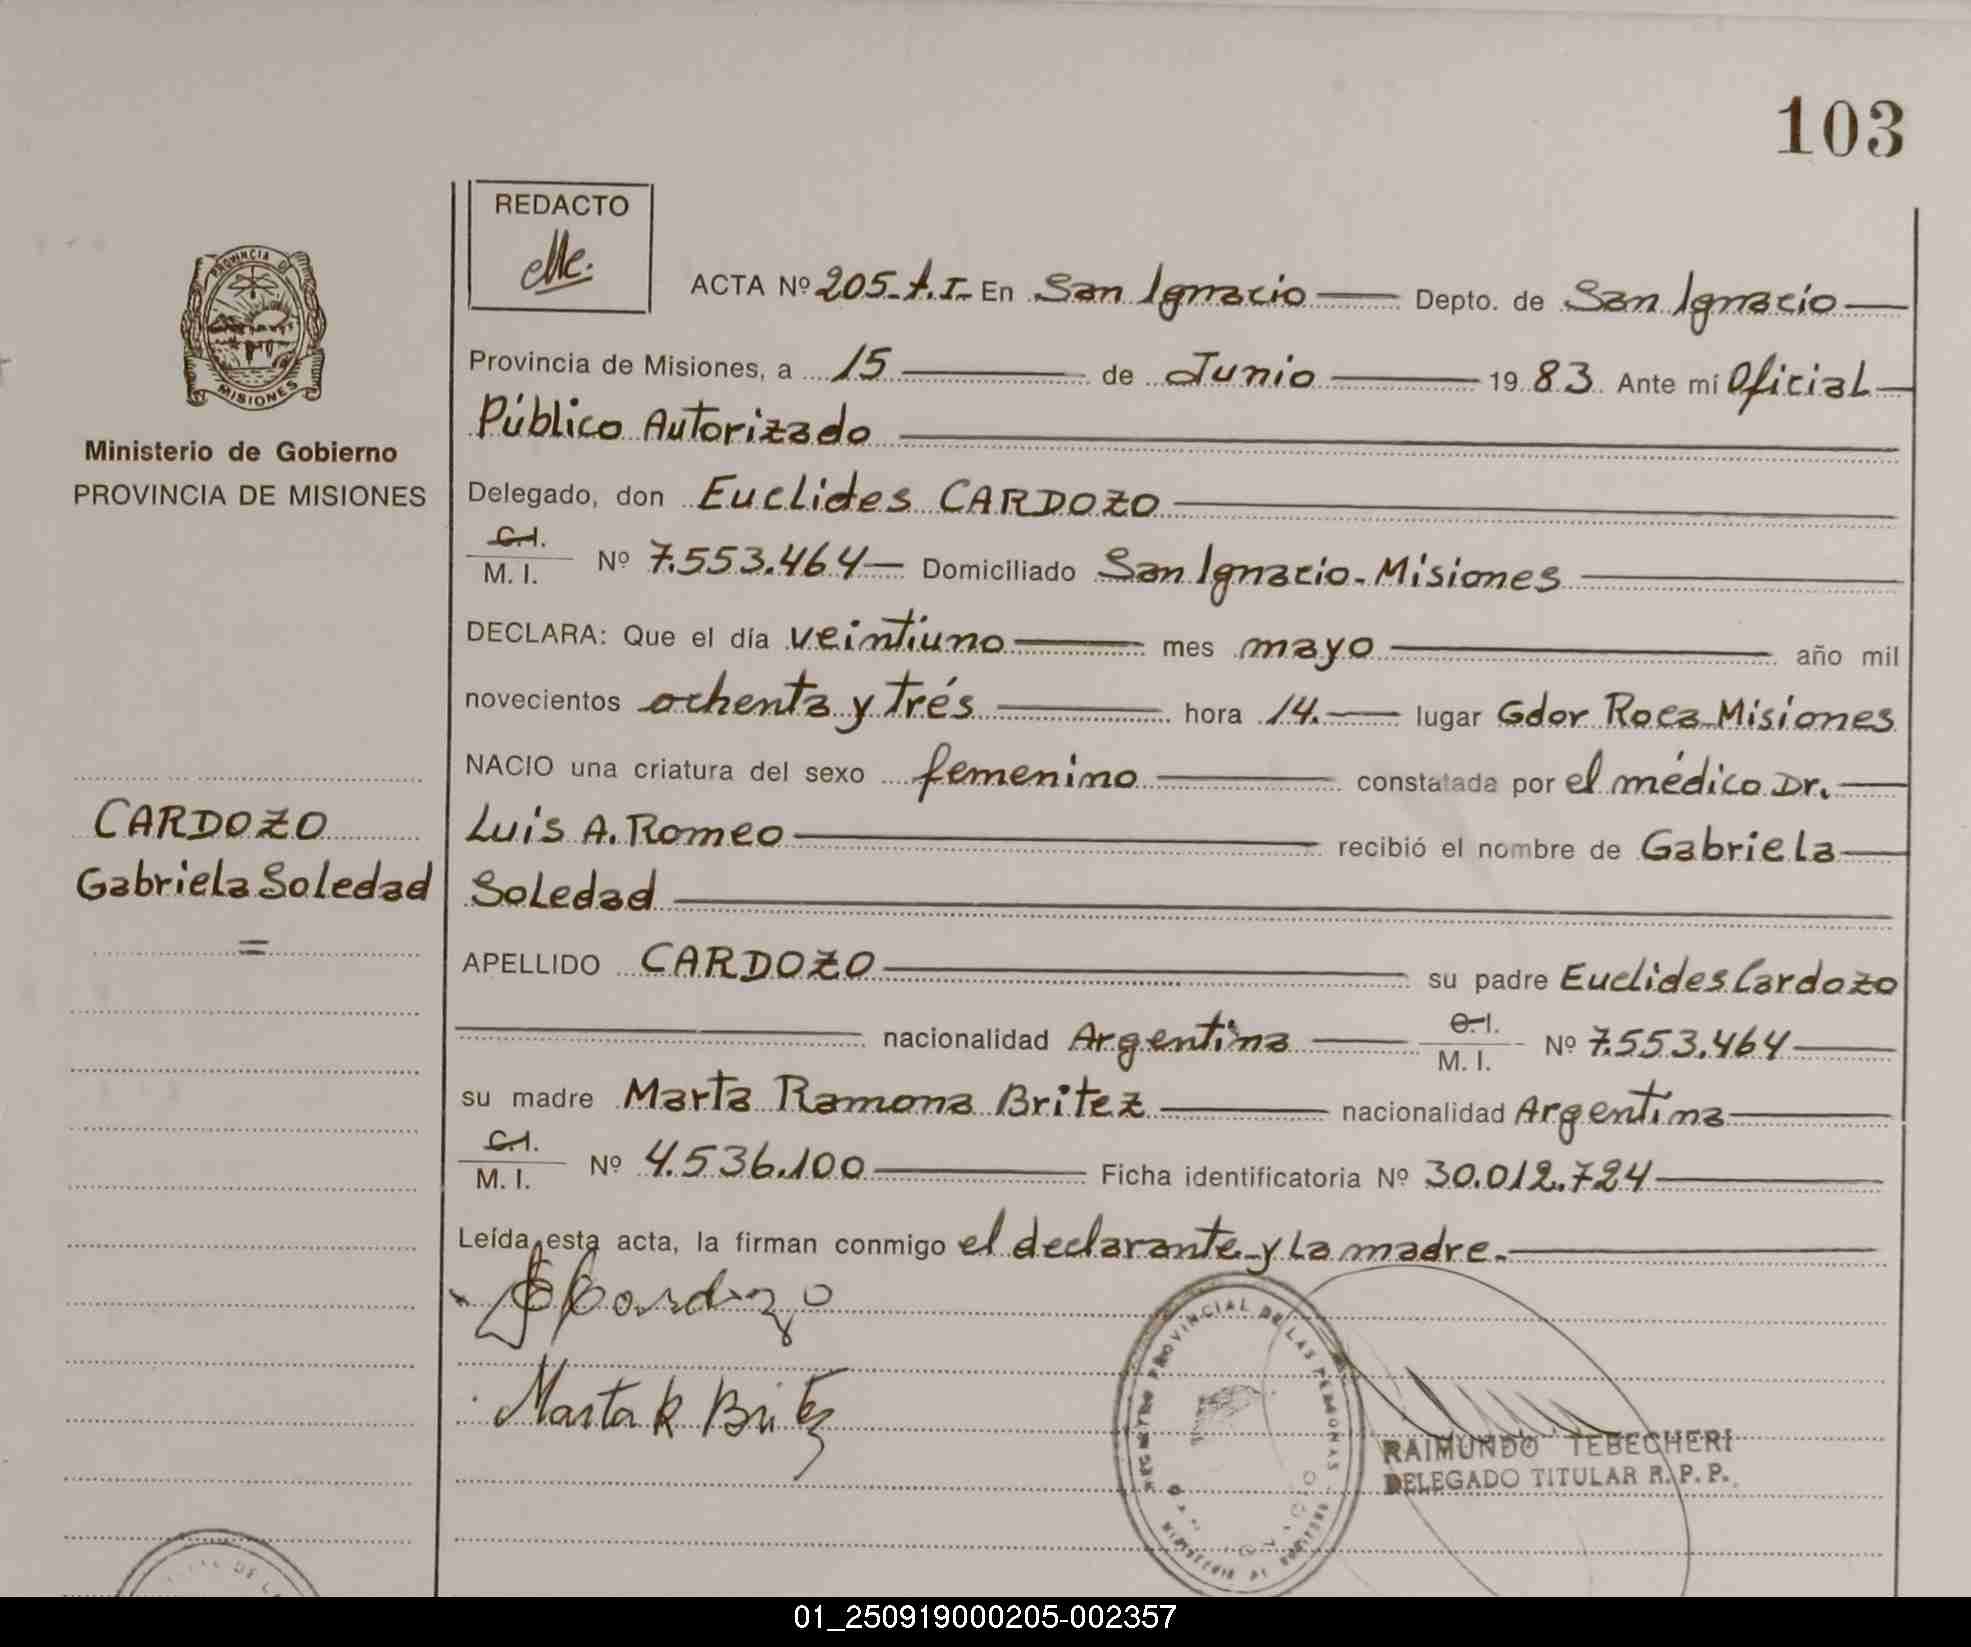 103
REDACTO
ACTA Nº 205-A.I- En San Ignacio Depto. de San Ignacio
Provincia de Misiones, a 15 de Junio 1983. Ante mí Oficial
Público Autorizado
Delegado, don Euclides CARDOZO
C.I.
M. I. Nº 7.553.464 Domiciliado San Ignacio-Misiones
DECLARA: Que el día veintiuno mes mayo año mil
novecientos ochenta y trés hora 14. lugar Gdor Roca-Misiones
NACIO una criatura del sexo femenino constatada por el médico Dr.
Luis A. Romeo recibió el nombre de Gabriela
Soledad
APELLIDO CARDOZO su padre Euclides Cardozo
nacionalidad Argentina C.I.
M. I. Nº 7.553.464
su madre Marta Ramona Britez nacionalidad Argentina
C.I.
M. I. Nº 4.536.100 Ficha identificatoria Nº 30.012.724
Leída esta acta, la firman conmigo el declarante y la madre.
Cardozo
Marta R Britez
REGISTRO PROVINCIAL DE LAS PERSONAS
RAIMUNDO TEBECHERI
DELEGADO TITULAR R. P. P.
PROVINCIA DE
MISIONES
Ministerio de Gobierno
PROVINCIA DE MISIONES
CARDOZO
Gabriela Soledad
=
01_250919000205-002357